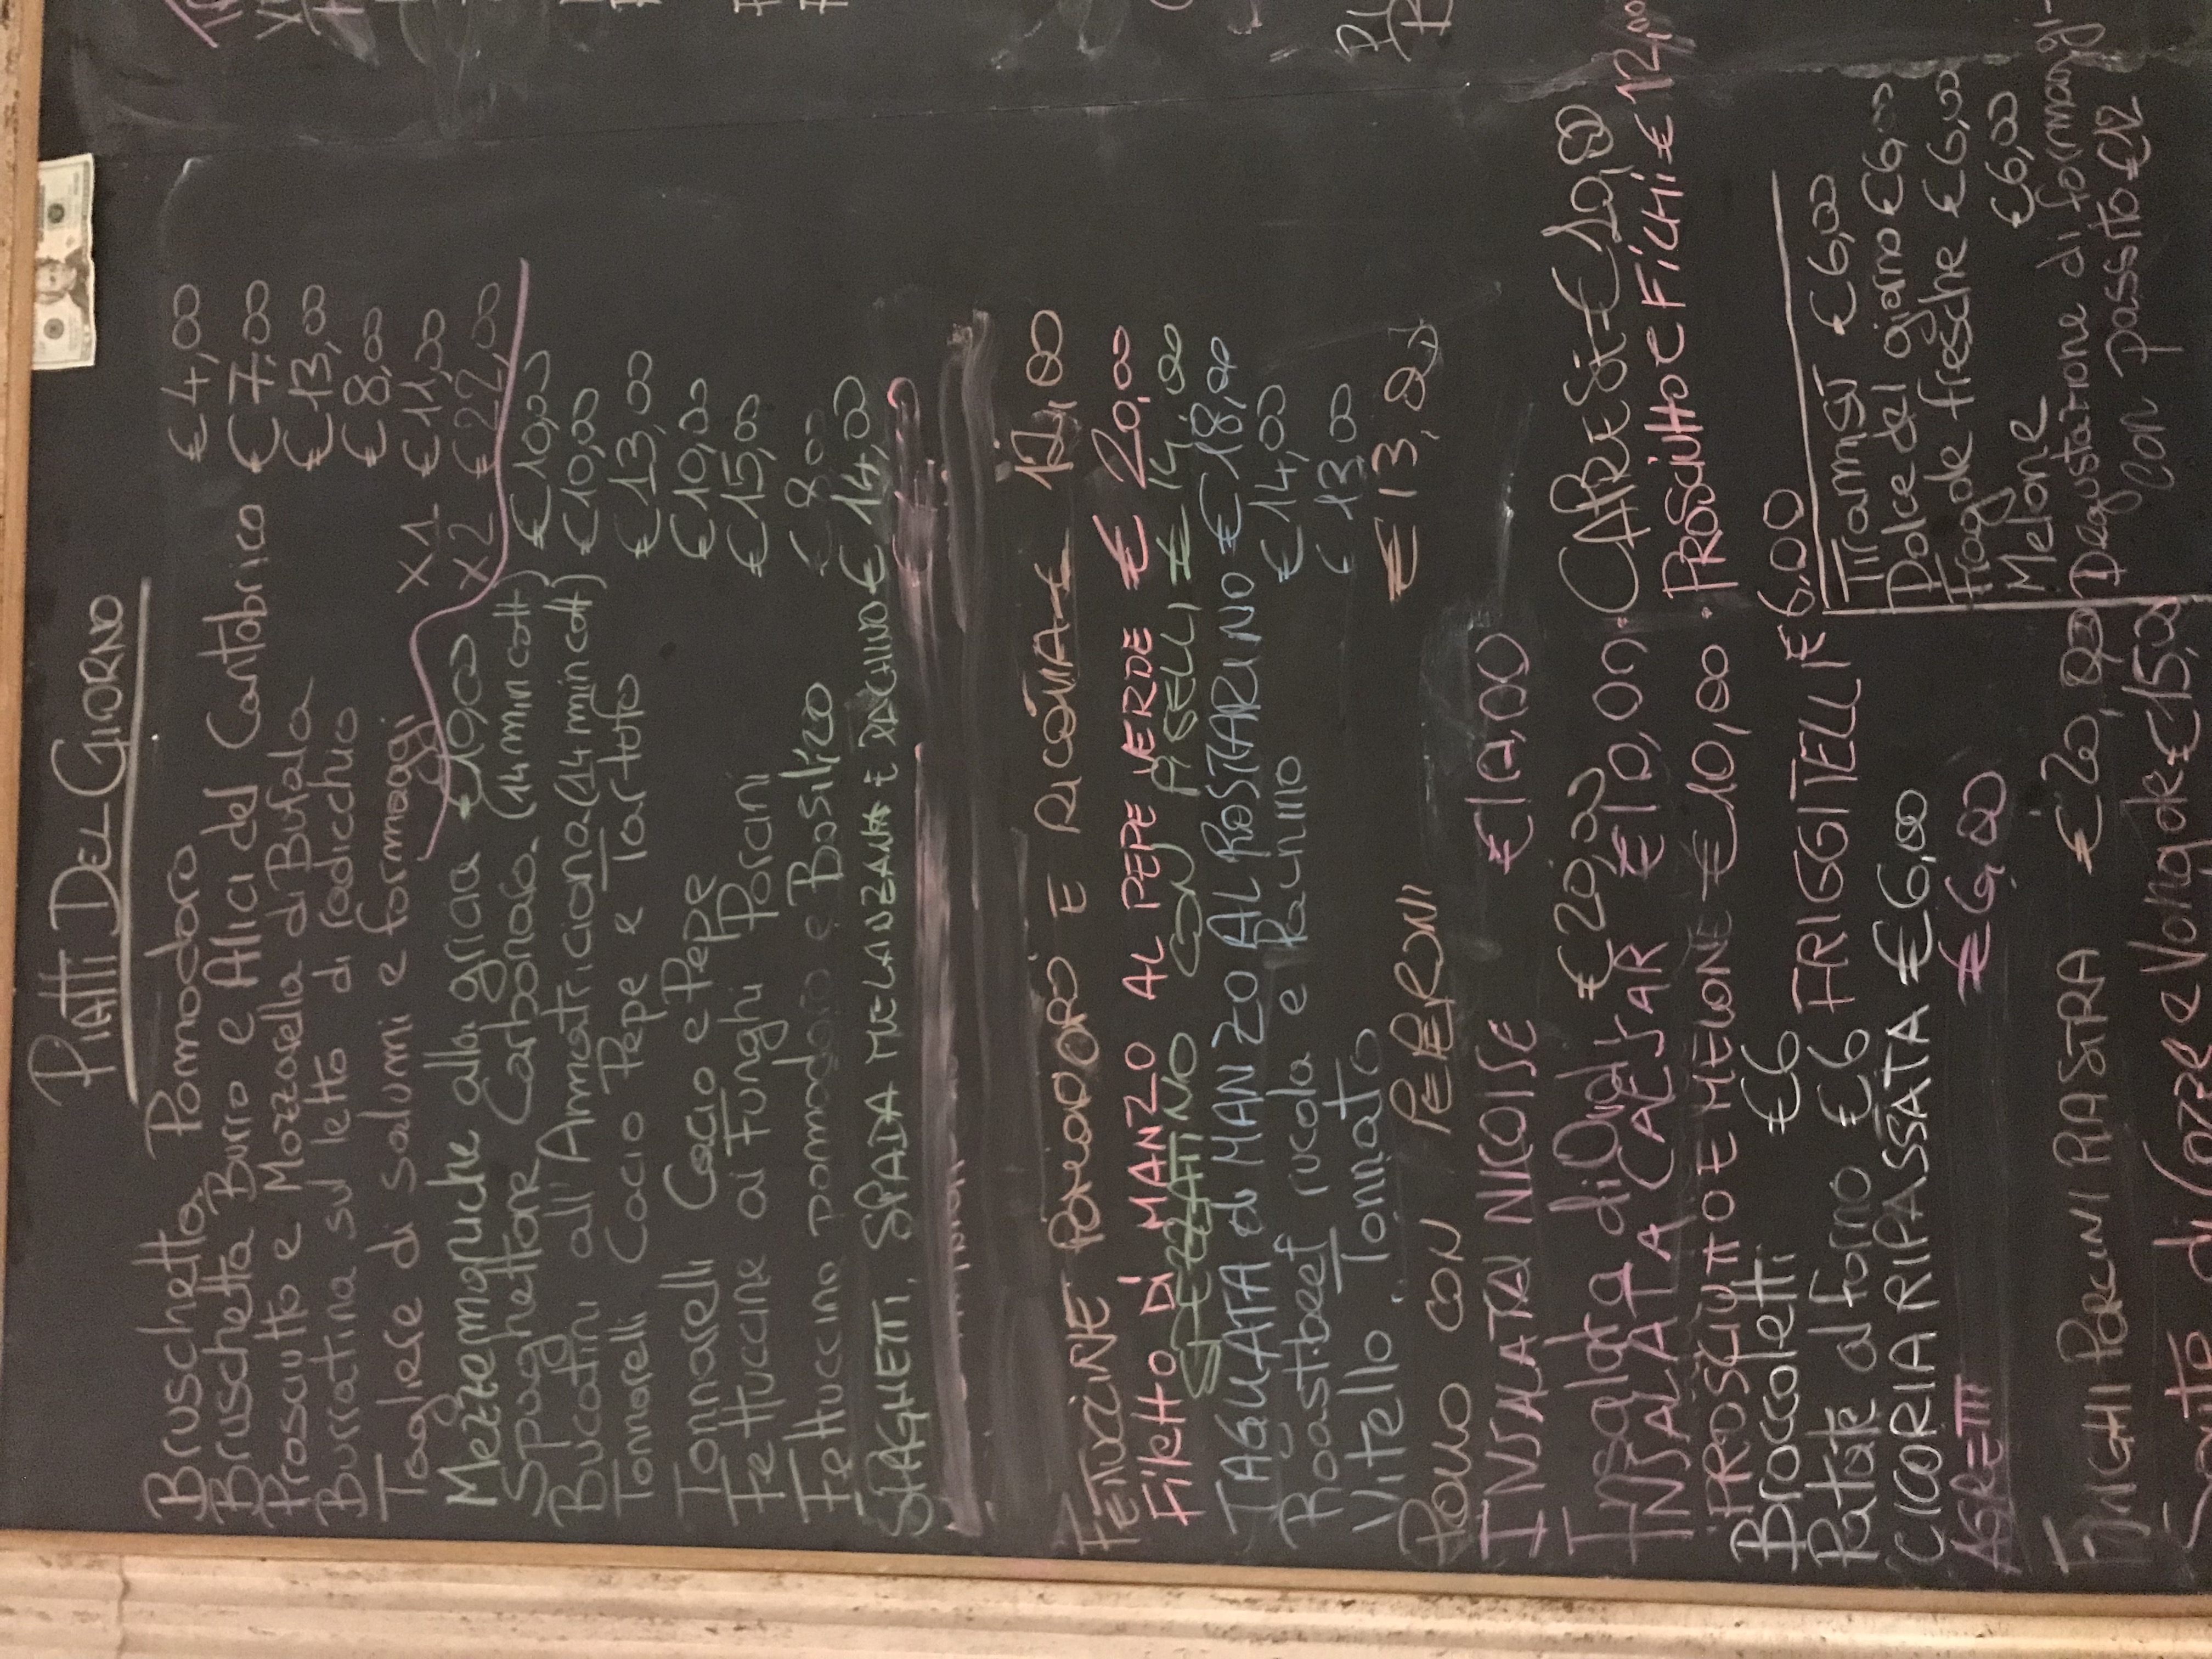 PIATTI DEL GIORNO
Bruschetta Pomodoro € 4,00
Bruschetta Burro e Alici del Cantabrico € 7,00
Prosciutto e Mozzarella di Bufala € 13,00
Burratina sul letto di radicchio € 8,00
Tagliere di salumi e formaggi x1 € 11,00
x2 € 22,00
Mezzemaniche alla gricia €
Spaghettone Carbonara (14 min cott) € 10,00
Bucatini all'Amatriciana (14 min cott) € 10,00
Tonnarelli Cacio Pepe e Tartufo € 13,00
Tonnarelli Cacio e Pepe € 10,00
Fettuccine ai Funghi Porcini € 15,00
Fettuccine pomodoro e Basilico € 8,00
SPAGHETTI SPADA MELANZANE E PACHINO € 14,00
FETTUCCINE POMODORO E RICOTTA €
FILETTO DI MANZO AL PEPE VERDE € 20,00
SPEZZATINO CON PISELLI € 14,00
TAGLIATA di MANZO AL ROSMARINO € 18,00
Roastbeef rucola e Pachino € 14,00
Vitello Tonnato € 13,00
POLLO CON PEPERONI € 13,00
INSALATA NICOISE
Insalata di € 20,00
INSALATA CAESAR € 10,00 · CAPRESE € 10,00
PROSCIUTTO E MELONE € 10,00 · PROSCIUTTO E FICHI € 12,00
Broccoletti €6
FRIGGITELLI € 6,00
Patate al forno €6
CICORIA RIPASSATA € 6,00
AGRETTI € 6,00
Tiramisù € 6,00
Dolce del giorno € 6,00
Fragole fresche € 6,00
Melone € 6,00
Degustazione di formaggi
con passito € 12
FUNGHI PORCINI PIASTRA € 20,00
Sautè di Cozze e Vongole € 15,00